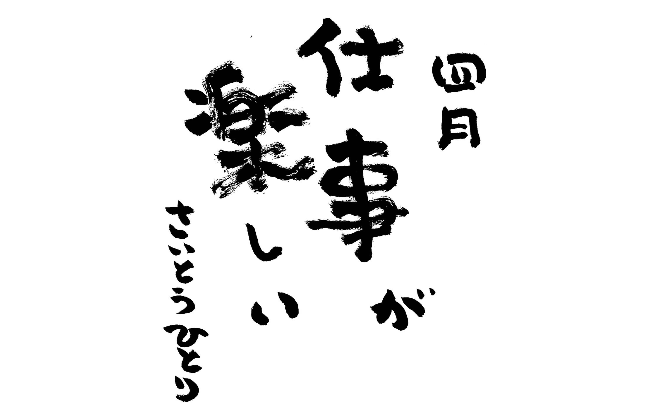 四月
仕事が
楽しい
さいとうひとり